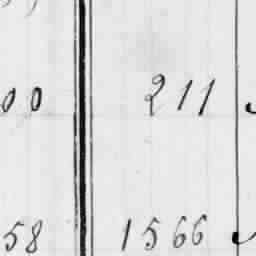 00 211
58 1566